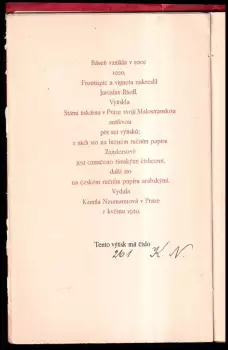 Báseň vznikla v roce
1920.
Frontispic a vignetu nakreslil
Jaroslav Riedl.
Vytiskla
Státní tiskárna v Praze svojí Malostranskou
antikvou
pět set výtisků;
z nich sto na bítném ručním papíru
Zandersově
jest označeno římskými číslicemi,
další sto
na českém ručním papíru arabskými.
Vydala
Kamila Neumannová v Praze
v květnu 1920.
Tento výtisk má číslo
261 K. N.